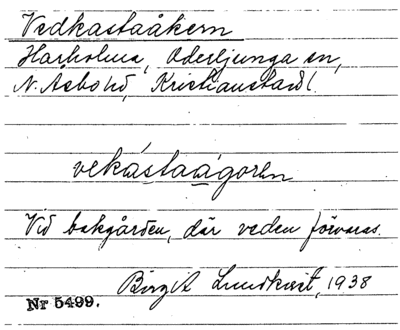 Vedkastaåkern
Harholma, Oderljunga sn,
N. Åsbo hd, Kristianstad l.
vekástaágoren
Vid bakgården, där veden förvaras.
Birgit Lundkvist, 1938
Nr 5499.